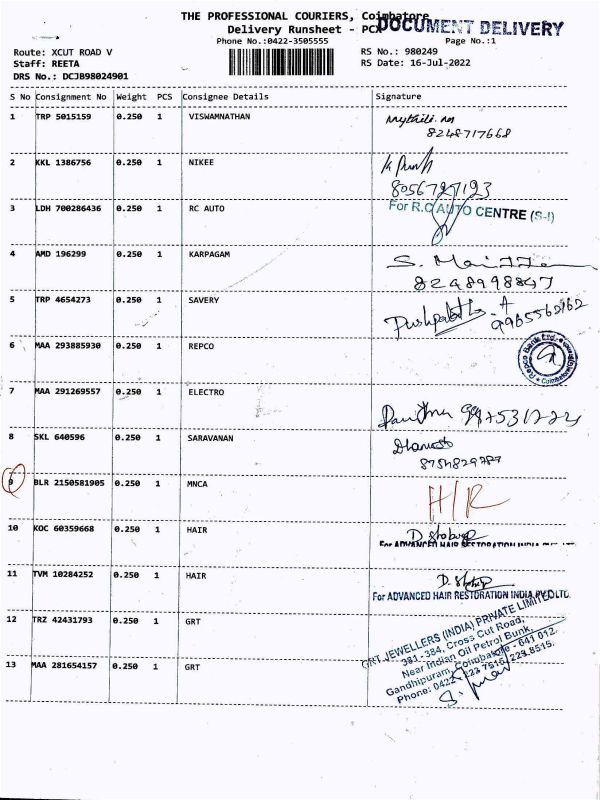 THE PROFESSIONAL COURIERS, Coimbatore
DOCUMENT DELIVERY
Delivery Runsheet - PCX
Phone No.:0422-3505555
Page No.:1
Route: XCUT ROAD V
RS No.: 980249
Staff: REETA
RS Date: 16-Jul-2022
DRS No.: DCJB98024901
S No Consignment No Weight PCS Consignee Details Signature
1 TRP 5015159 0.250 1 VISWAMNATHAN
8248717668
2 KKL 1386756 0.250 1 NIKEE
8056727123
3 LDH 700286436 0.250 1 RC AUTO For R.C AUTO CENTRE (S-I)
4 AMD 196299 0.250 1 KARPAGAM
8248998847
5 TRP 4654273 0.250 1 SAVERY
9965562162
6 MAA 293885930 0.250 1 REPCO Repco Bank Ltd. Coimbatore
7 MAA 291269557 0.250 1 ELECTRO
8 SKL 640596 0.250 1 SARAVANAN
9 BLR 2150581905 0.250 1 MNCA H/R
10 KOC 60359668 0.250 1 HAIR
For ADVANCED HAIR RESTORATION INDIA
11 TVM 10284252 0.250 1 HAIR
For ADVANCED HAIR RESTORATION INDIA PVT LTD.
12 TRZ 42431793 0.250 1 GRT
GRT JEWELLERS (INDIA) PRIVATE LIMITED
381-384, Cross Cut Road,
Near Indian Oil Petrol Bunk,
Gandhipuram, Coimbatore - 641 012.
Phone: 0422 - 223 7515, 223 8515.
13 MAA 281654157 0.250 1 GRT